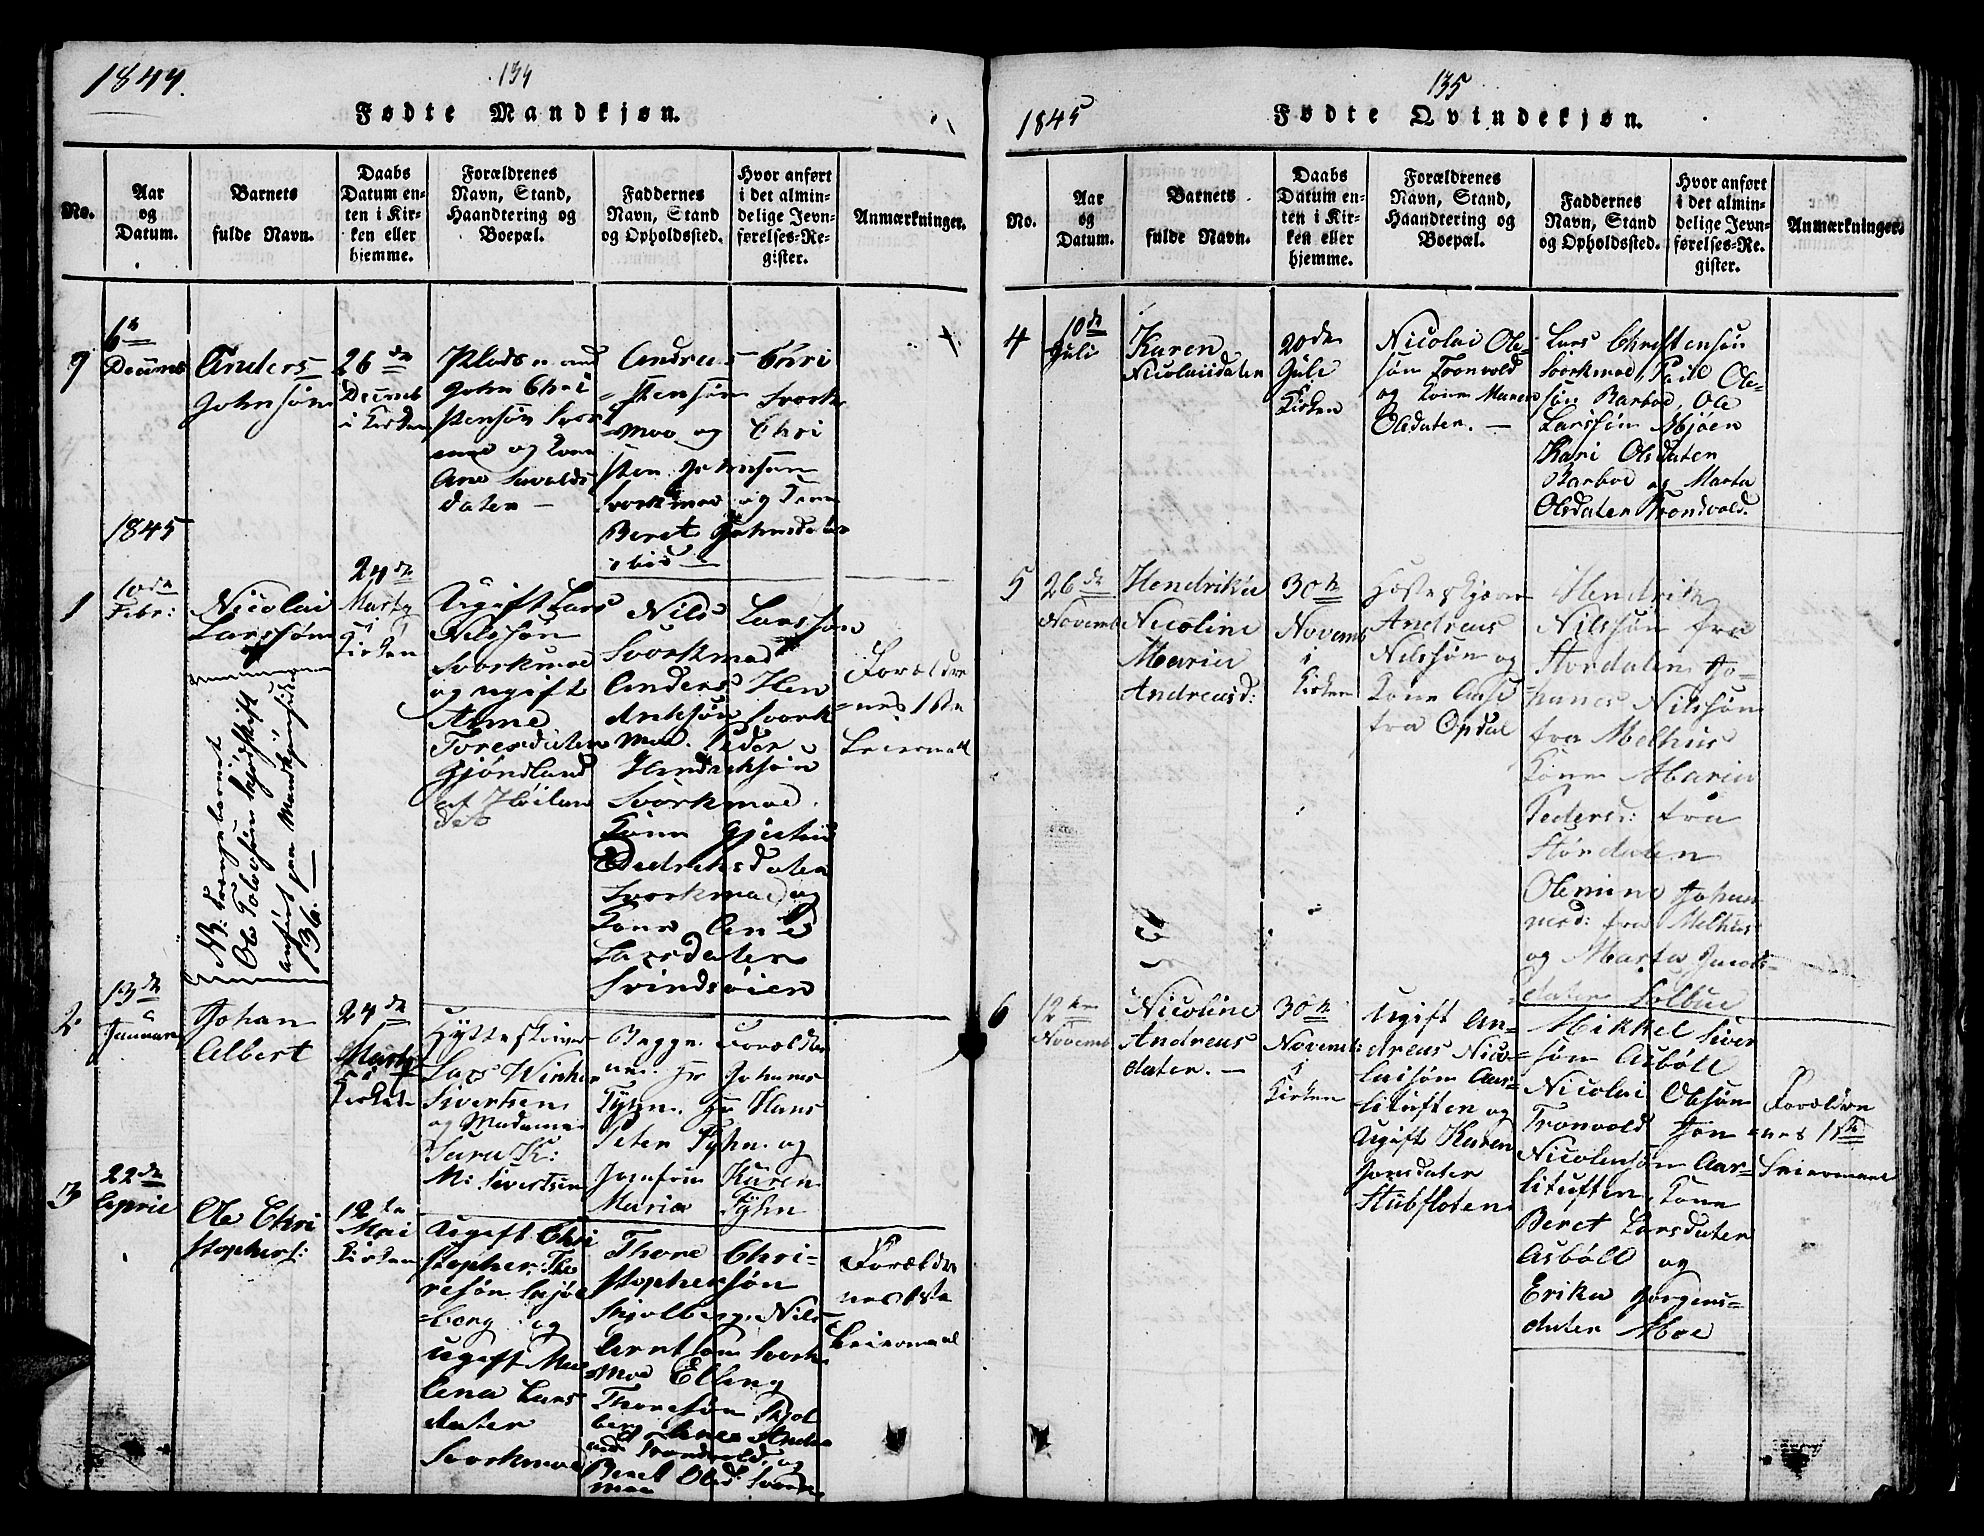 1844.
134
Fødte Mandkjøn.
No.
Aar
og
Datum.
Barnets
fulde Navn.
Daabs
Datum en-
ten i Kir-
ken eller
hjemme.
Forældrenes
Navn, Stand,
Haandtering og
Boepæl.
Faddernes
Navn, Stand
og Opholdssted.
Hvor anført
i det almin-
delige Jevn-
førelses-Re-
gister.
Anmærkninger.
9
6te
Decemb
Anders
Johnsøn
26de
Decemb
i Kirken
Pladsm and
John Chri
stensøn Svor
moe og Kone
Ane Sivalds
daten
Andreas Chri
stensøn Svork
Moe og Chri
sten Johnsen
Svorkmoe og Kone
Beret Johnsdaten
ibid
1845
1
10de
Febr:
Nicolai
Larssøn
24de
Marty
i
Kirken
Ugift Lars
Nilssøn
Svorkmoe
og ugift
Anne
Toresdaten
Gjöndland
af Høilan
det
Nils Larssøn
Svorkmoe
Anders Hen
driksøn Svork
Moe. Peder
Hendriksøn
Svorkmoe.
Kone Gjertrud
Diedriksdaten
Svorkmoe og
Kone Ane
Larsdaten
Svindsøien
Forældre
nes 1ste
Leiermaal
NB: Tvangsbarnet
Ole Tolofsen Gjødskift
anført paa Mandkjønsiden
136.
2
13de
Januar
Johan
Albert
24de
Marty
i
Kirken
Hytteskriver
Lars Winther
Sivertsen
og Madame
Sara K:
M: Sivertsen
Begge Forældre
ne. Hr Johannes
Tyhn. Hr Hans
Peter Tyhn. og
Jomfrue Karen
Maria Tyhn
3
22de
April
Ole Chri
stophers:
12te
Mai
Kirken
Ugift Chri
stopher Tho
resøn Skjøl
berg og
ugift Ma
lena Lars
daten
Svorkmoe
Thore Chri-
stophersøn
Skjolberg. Nils
Arntsøn Svork
Moe Elling
Thoresøn Skjol
berg. Lene Andre
asd Trondvold. og
Beret Olsd. Svork
moe
Forældre
nes 1ste
Leiermaal
1845
135
Fødte Qvindekjøn.
No.
Aar
og
Datum.
Barnets
fulde Navn.
Daabs
Datum en-
ten i Kir-
ken eller
hjemme.
Forældrenes
Navn, Stand,
Haandtering og
Boepæl.
Faddernes
Navn, Stand
og Opholdssted.
Hvor anført
i det almin-
delige Jevn-
førelses-Re-
gister.
Anmærkninger.
4
10de
Juli
Karen
Nicolaidaten
20de
Juli
Kirken
Nicolai Ole-
søn Tronvold
og Kone Maren
Olsdaten.
Lars Christensøn
Svorkmoe, Paul Ole-
søn Barboe, Ole
Larssøn Mjøen
Kari Olsdaten
Barboe og Marta
Olsdaten Trondvold.
5
26de
Novemb
Hendrikke
Nicoline
Maria
Andreasd:
30te
Novemb
i
Kirken
Andreas
Nilssøn og
Kone Aase
fra Opdal
Hendrik
Nilssøn fra
Stordalen Jo-
hanes Nilssøn
fra Melhus
Kone Maria
Pedersd: fra
Størdalen
Olemine Johan
nesd: fra Melhus
og Marta Jacobs-
daten Solbue
6
12te
Novemb
Nicoline
Andreas
daten.
30te
Novemb:
i
Kirken
Ugift An-
dreas Nico-
laisøn Aar-
lituften og
Ugift Karen
Jonsdaten
Stubfloten
Mikkel Siver
søn Asbøll
Nicolai Olsøn
Tronvold Jon
Nicolaisøn Aar-
lituften, Kone
Beret Larsdaten
Asbøll og
Erika Jørgens-
daten Moe
Forældre
nes 1ste
Leiermaal